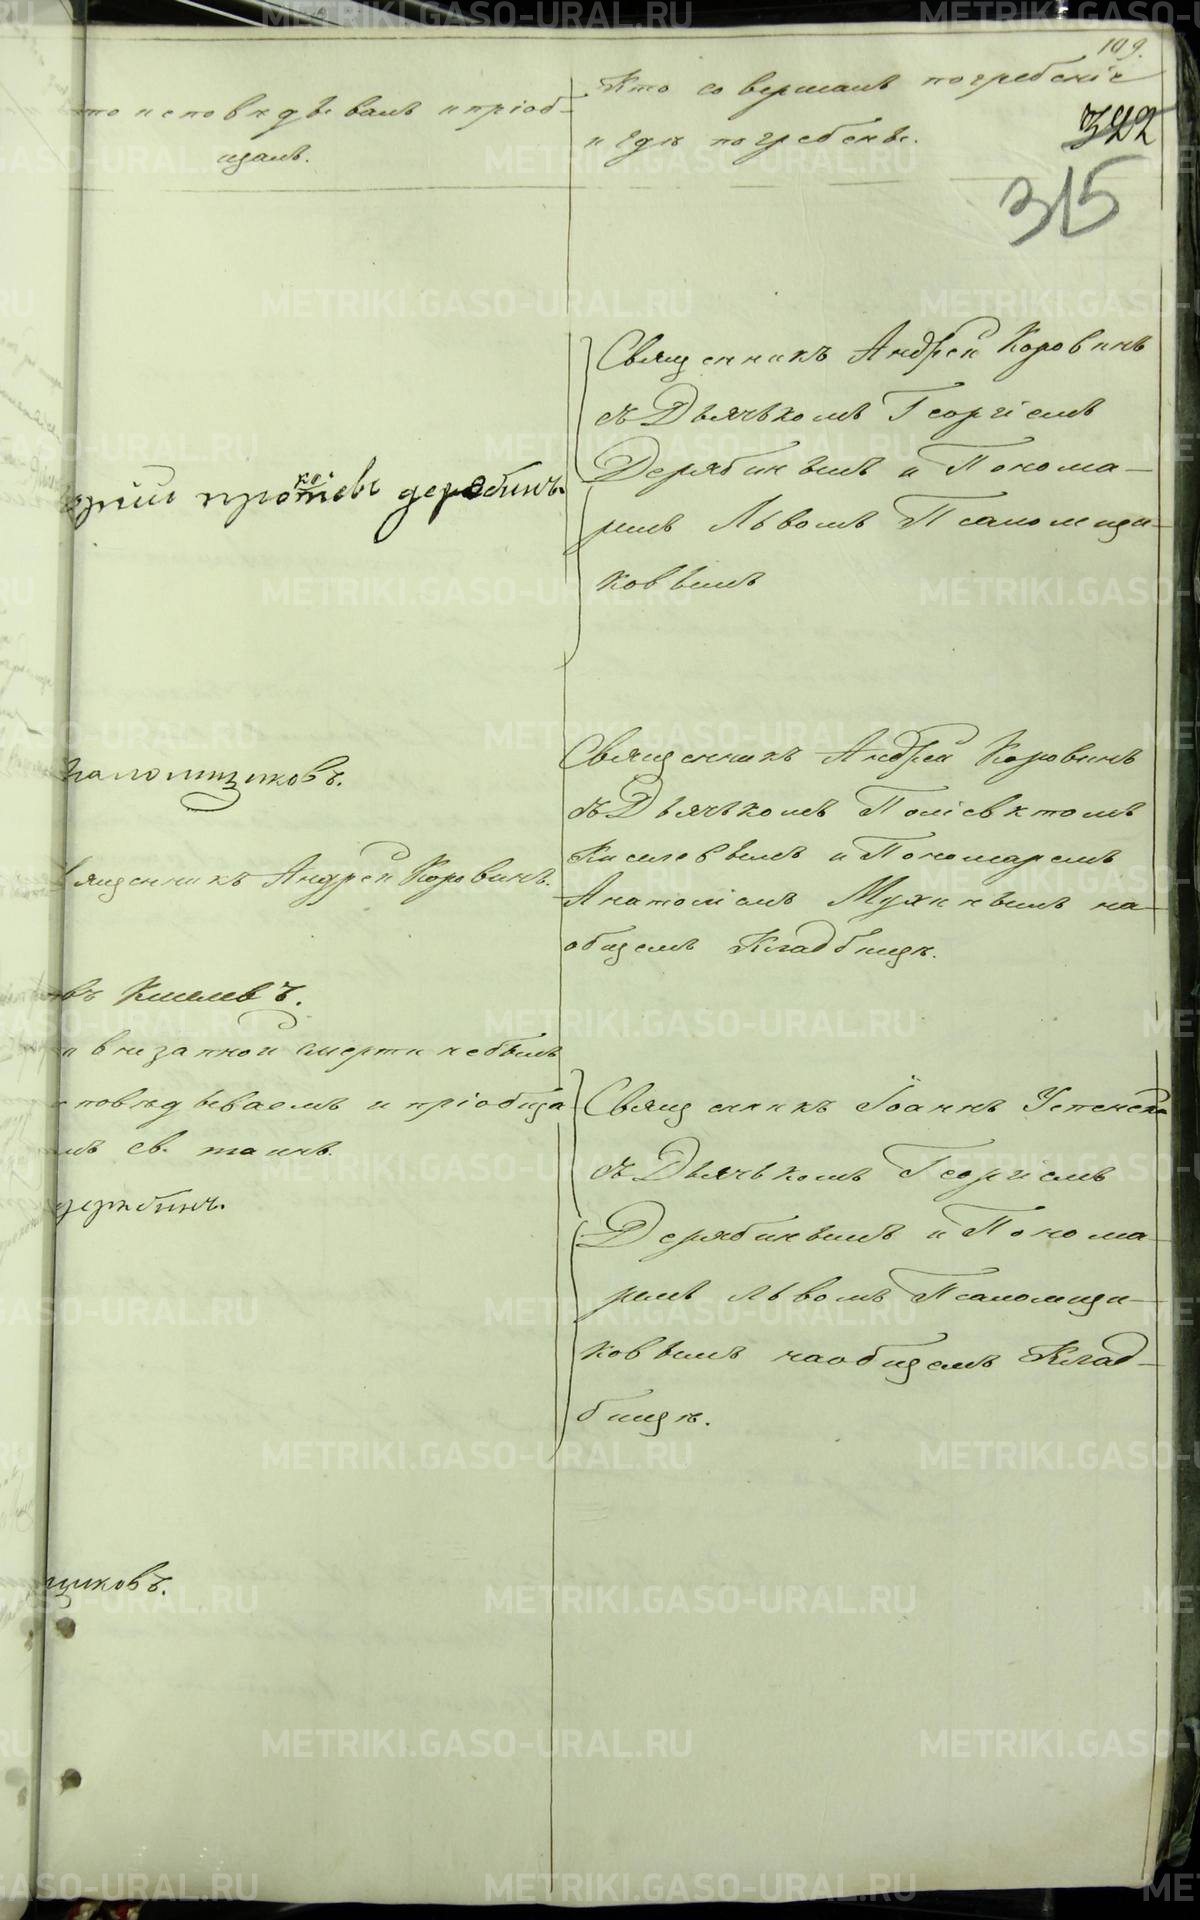 109.
322
315
то исповѣдывалъ и пріоб-
щалъ.
Кто совершалъ погребеніе
и гдѣ погребены.
Священникъ Андрей Коровинъ
съ Дьячькомъ Георгіемъ
Дерябинымъ и Понома-
ремъ Львомъ Псаломщи-
ковымъ
дерябинъ.
паломщиковъ.
Священникъ Андрей Коровинъ
съ Дьячькомъ Поліевктомъ
Киселевымъ и Пономаремъ
Анатоліемъ Мухинымъ на
общемъ Кладбищѣ.
ященникъ Андрей Коровинъ.
въ Киселевъ.
и внезапной смерти небылъ
повѣдываемъ и пріобща
мъ св. таинъ.
дерябинъ.
Священникъ Іоаннъ Успенскі
съ Дьячькомъ Георгіемъ
Дерябинымъ и Понома-
ремъ Львомъ Псаломщи-
ковымъ наобщемъ Клад-
бищѣ.
щиковъ.
METRIKI.GASO-URAL.RU